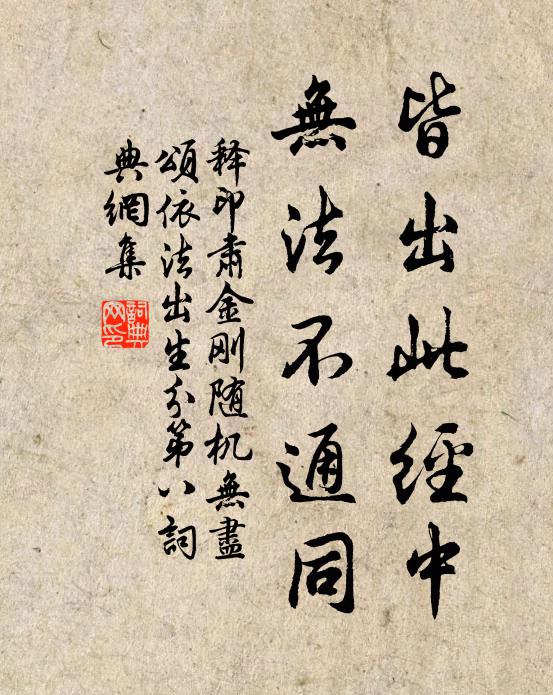 皆出此經中
無法不通同
释印肅金刚随机無盡
頌依法出生分第八詞
典網集
詞典網印